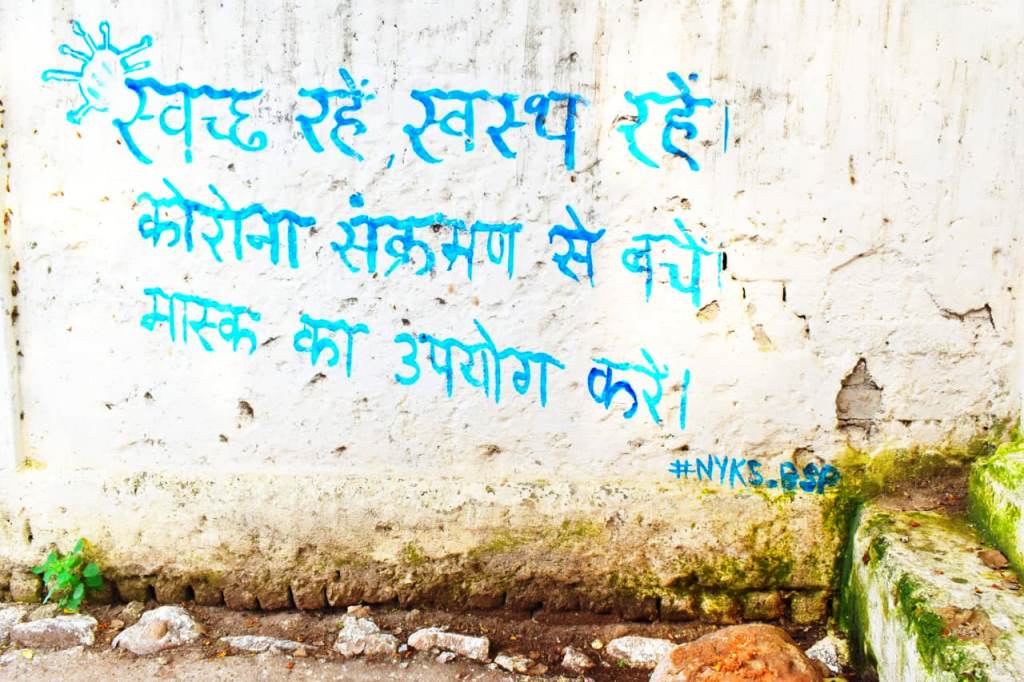 स्वच्छ रहें, स्वस्थ रहें।
कोरोना संक्रमण से बचें।
मास्क का उपयोग करें।
#NYKS_BSP